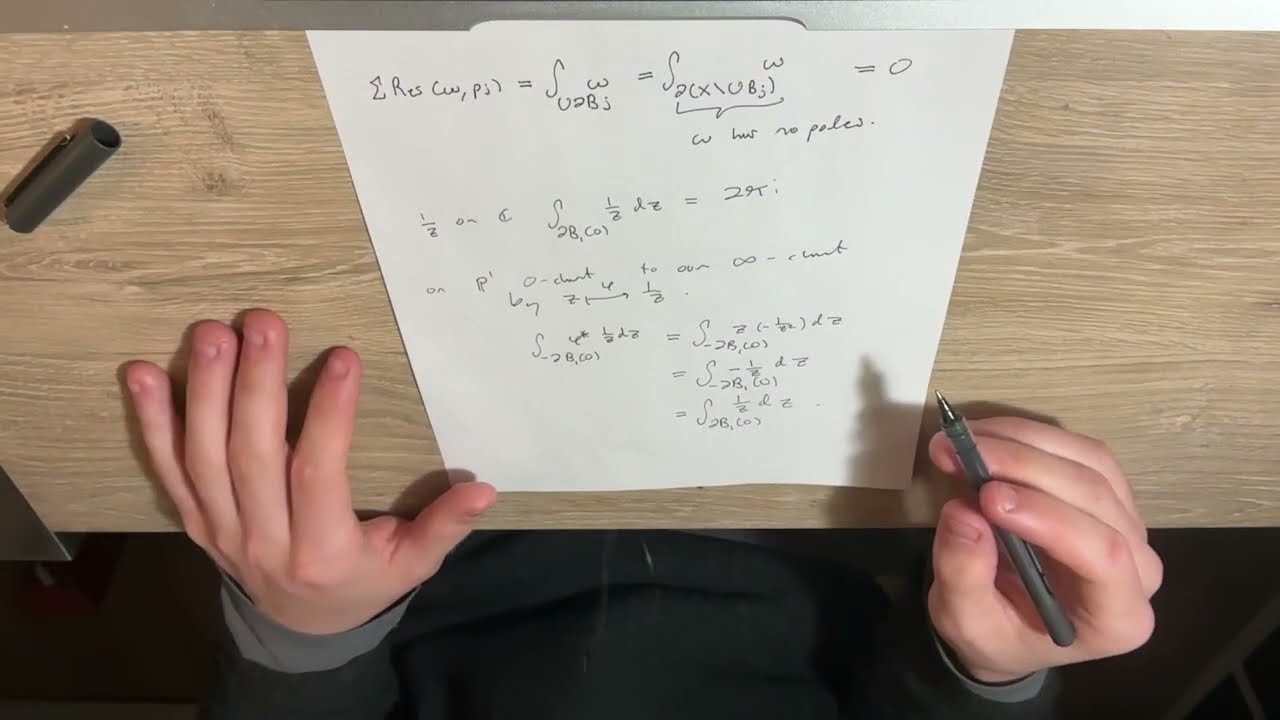 Σ Res(ω, pj) = ∫_{∪∂Bj} ω = ∫_{∂(X\∪Bj)} ω = 0
ω has no poles.
1/z on ℂ ∫_{∂B₁(0)} 1/z dz = 2πi
on ℙ¹ 0-chart φ to our ∞-chart
by z ⟼ 1/z .
∫_{-∂B₁(0)} φ* 1/z dz = ∫_{-∂B₁(0)} z (-1/z²) dz
= ∫_{-∂B₁(0)} -1/z dz
= ∫_{∂B₁(0)} 1/z dz .